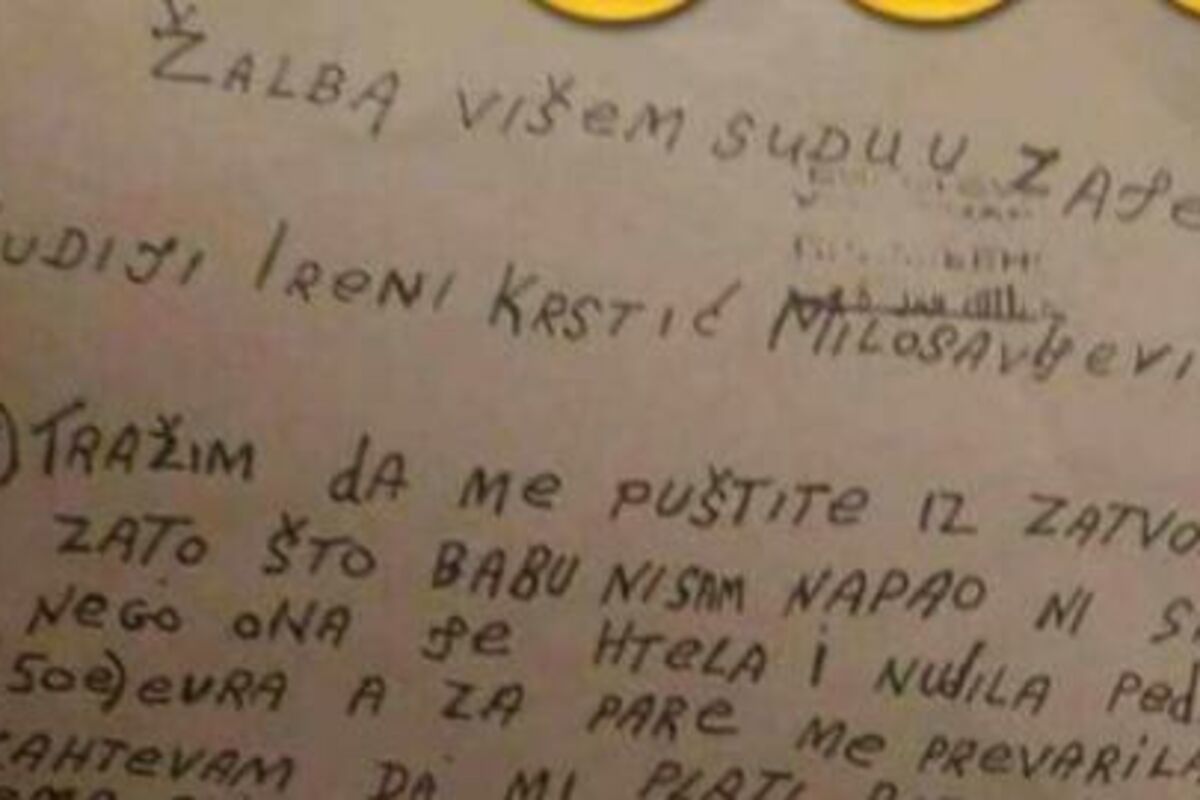 ŽALBA VIŠEM SUDU U ZAJE
UDIJI IRENI KRSTIĆ MILOSAVLJEVI
) TRAŽIM DA ME PUŠTITE IZ ZATVO
ZATO ŠTO BABU NISAM NAPAO NI S
NEGO ONA JE HTELA I NUDILA PED
500e) EVRA A ZA PARE ME PREVARILA
ZAHTEVAM DA MI PLATI